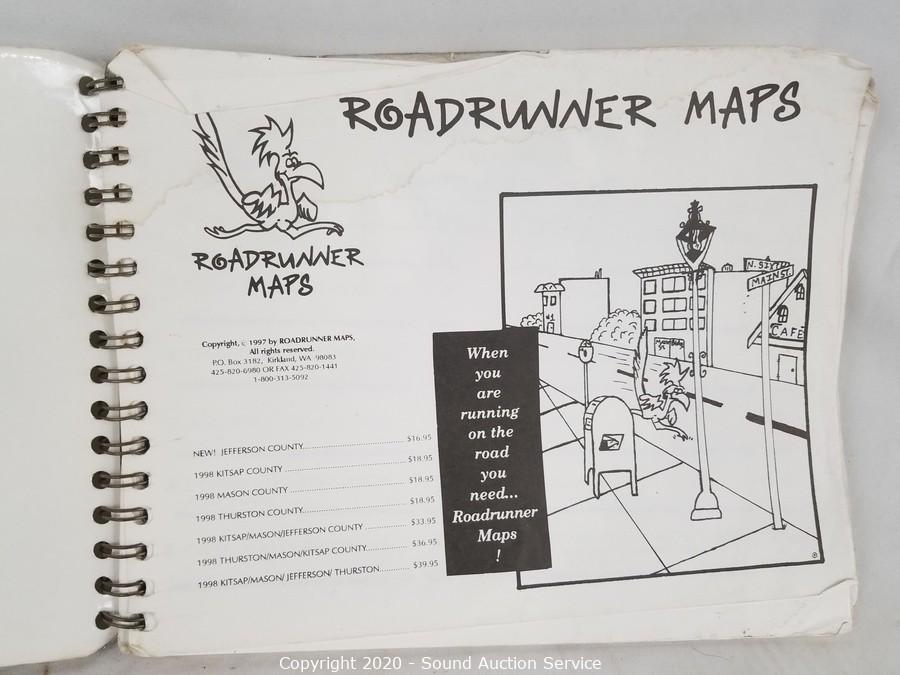 ROADRUNNER MAPS
ROADRUNNER
MAPS
Copyright, © 1997 by ROADRUNNER MAPS,
All rights reserved.
P.O. Box 3182, Kirkland, WA 98083
425-820-6980 OR FAX 425-820-1441
1-800-313-5092
NEW! JEFFERSON COUNTY.......................... $16.95
1998 KITSAP COUNTY ................................ $18.95
1998 MASON COUNTY ............................... $18.95
1998 THURSTON COUNTY......................... $18.95
1998 KITSAP/MASON/JEFFERSON COUNTY ............ $33.95
1998 THURSTON/MASON/KITSAP COUNTY............ $36.95
1998 KITSAP/MASON/ JEFFERSON/ THURSTON......... $39.95
When
you
are
running
on the
road
you
need...
Roadrunner
Maps
!
N. SIXTH
MAIN ST.
CAFÉ
Copyright 2020 - Sound Auction Service